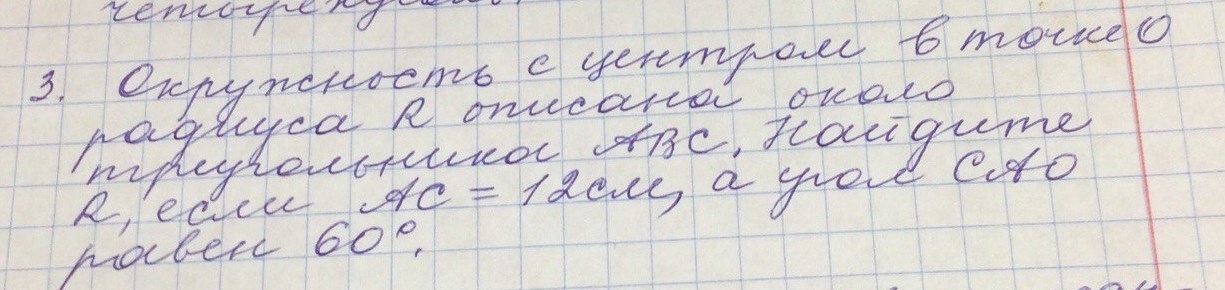 четырёхугольн
3. Окружность с центром в точке О
радиуса R описана около
треугольника АВС. Найдите
R, если АС = 12см, а угол САО
равен 60°.